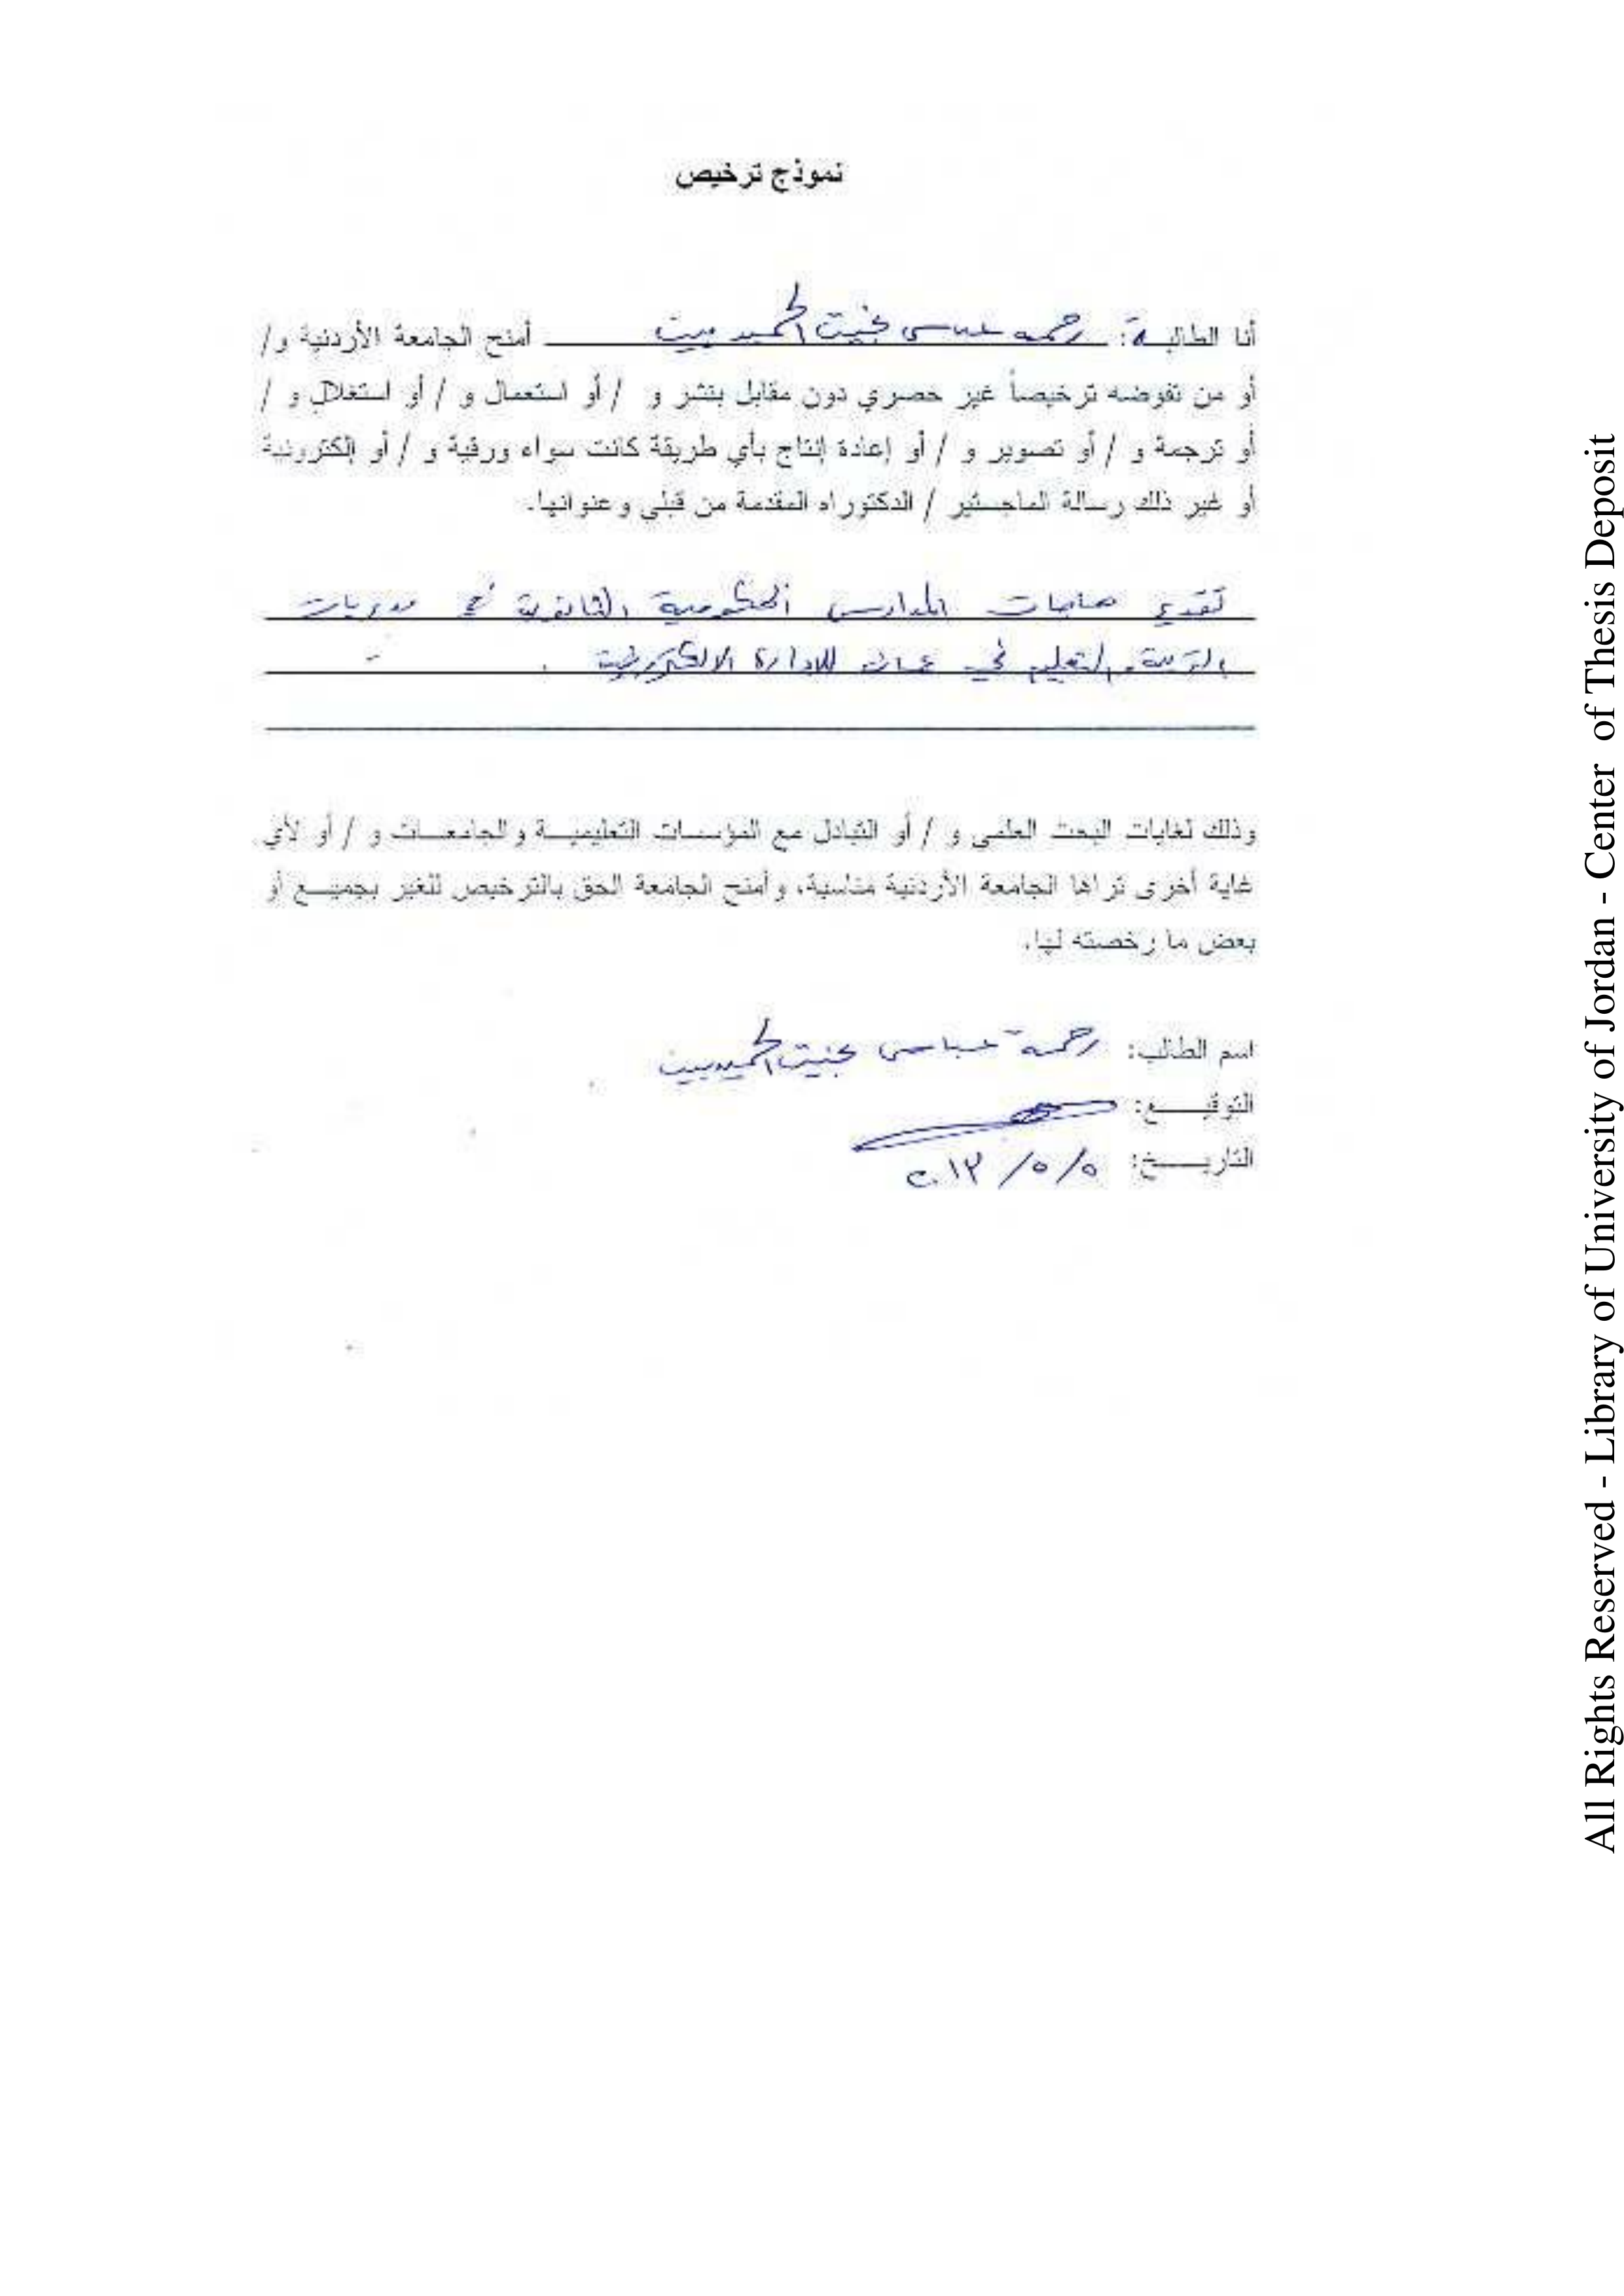 نموذج ترخيص
أنا الطالبـة: رحمه عباس بخيت الحميد أمنح الجامعة الأردنية و/
أو من تفوضه ترخيصاً غير حصري دون مقابل بنشر و / أو استعمال و / أو استغلال و /
أو ترجمة و / أو تصوير و / أو إعادة إنتاج بأي طريقة كانت سواء ورقية و / أو إلكترونية
أو غير ذلك رسالة الماجستير / الدكتوراه المقدمة من قبلي وعنوانها.
حاجات المدارس الحكومية الثانوية في مديريات
التربية والتعليم في عمان للادارة الالكترونية .
وذلك لغايات البحث العلمي و / أو التبادل مع المؤسسات التعليميـة والجامعـات و / أو لأي
غاية أخرى تراها الجامعة الأردنية مناسبة، وأمنح الجامعة الحق بالترخيص للغير بجميـع أو
بعض ما رخصته لها.
اسم الطالب: رحمة عباس بخيت
التوقيـع:
التاريـخ: ٥/ ٥/ ٢٠١٣
All Rights Reserved - Library of University of Jordan - Center of Thesis Deposit